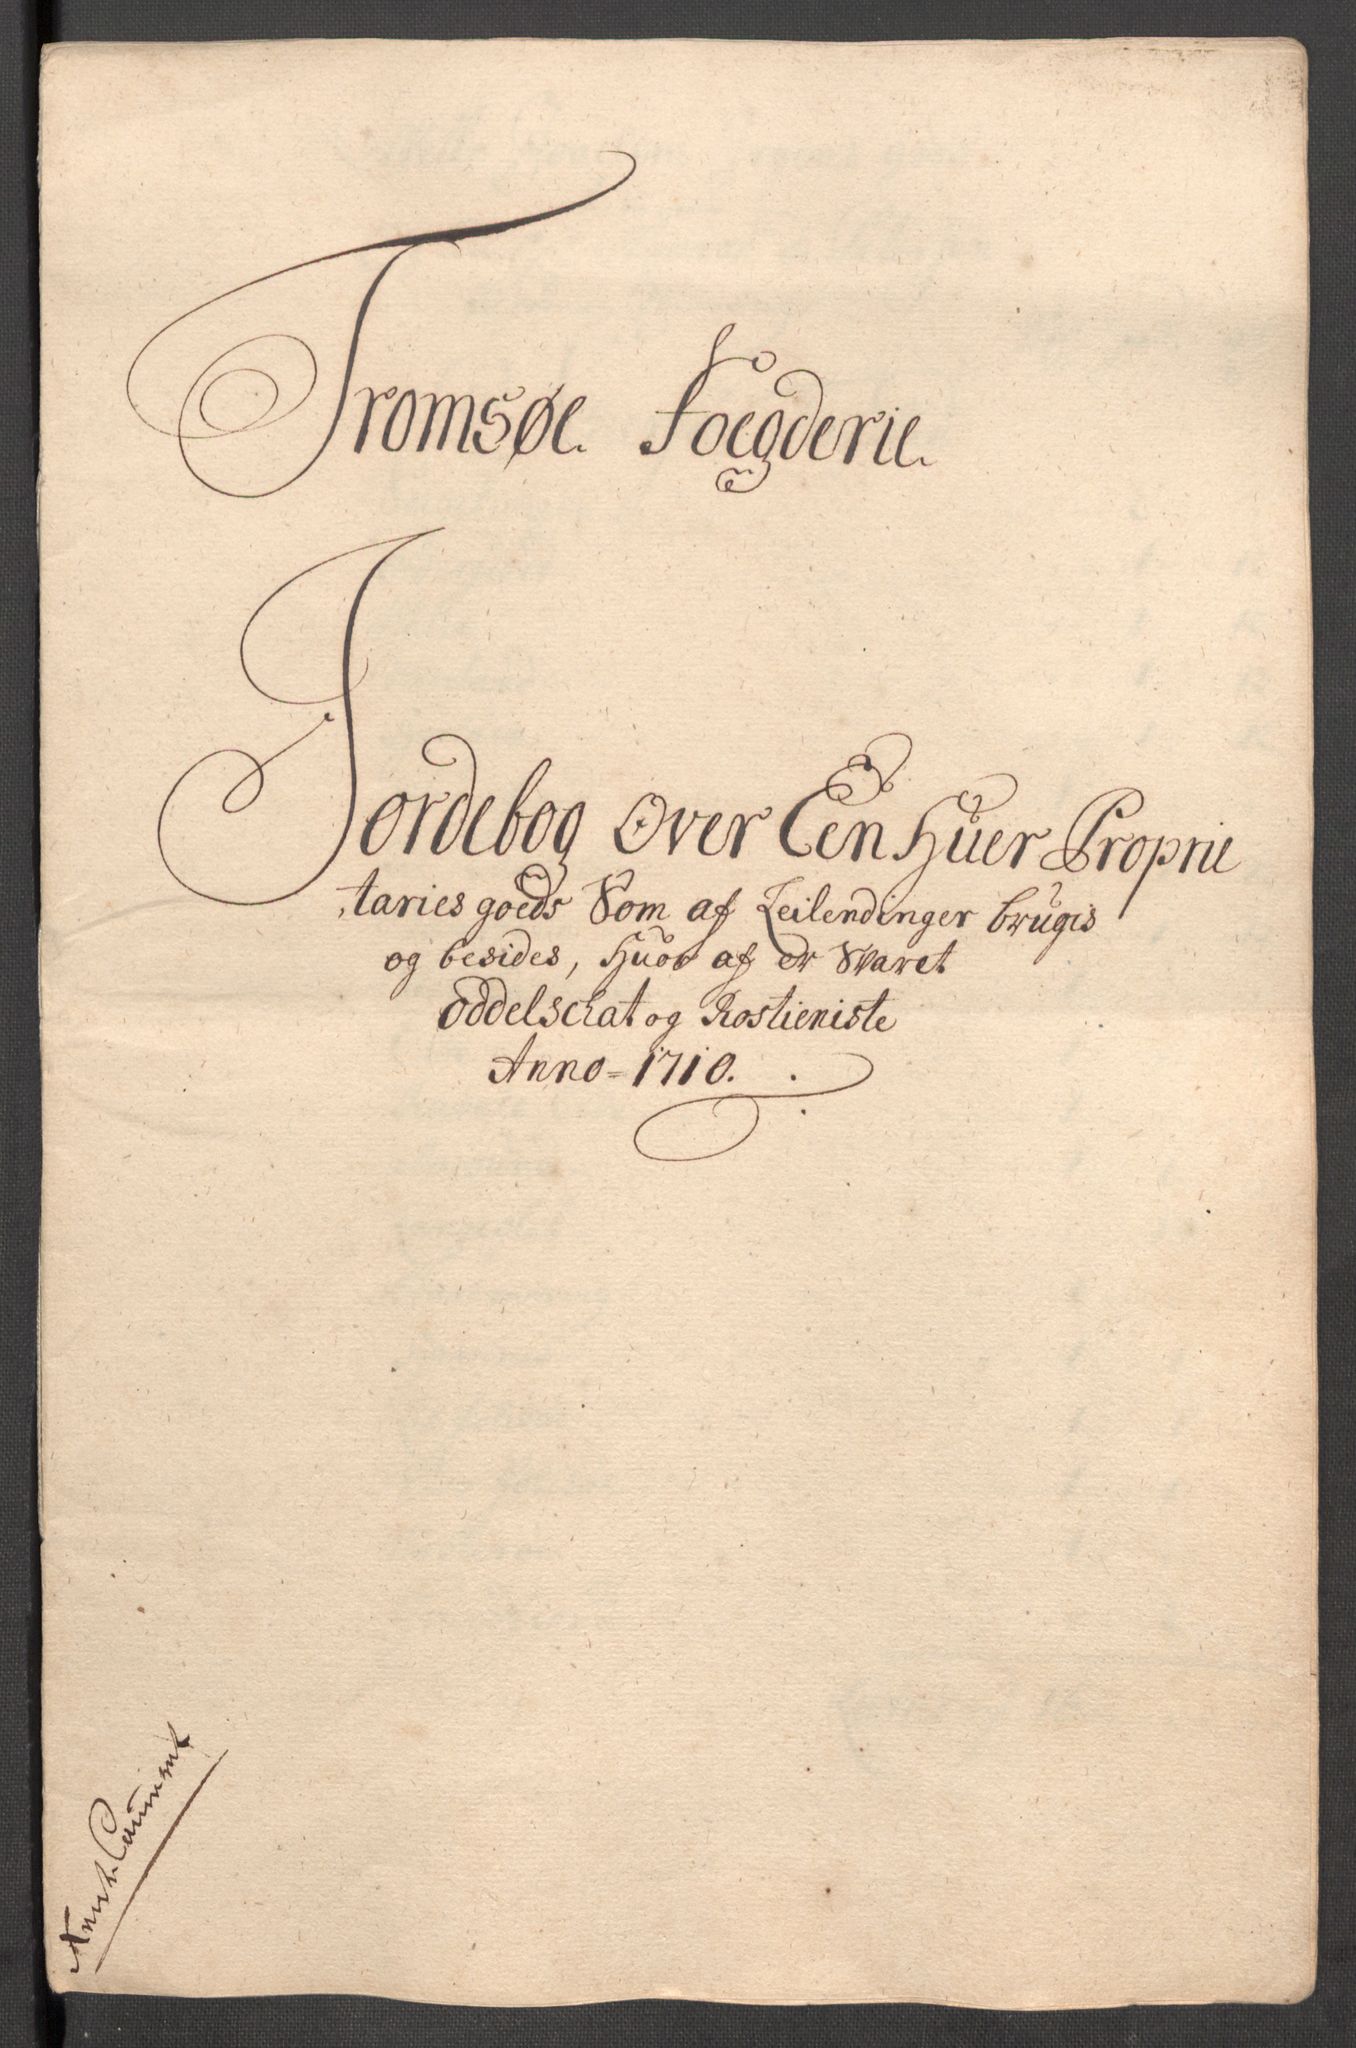 Tromsøe Foegderie
Jordebog Over Een Huer Proprie
taries goeds Som af Leilendinger brugis
og besides, Huor af er Svaret
Oddelschat og Rostieniste
Anno = 1710.